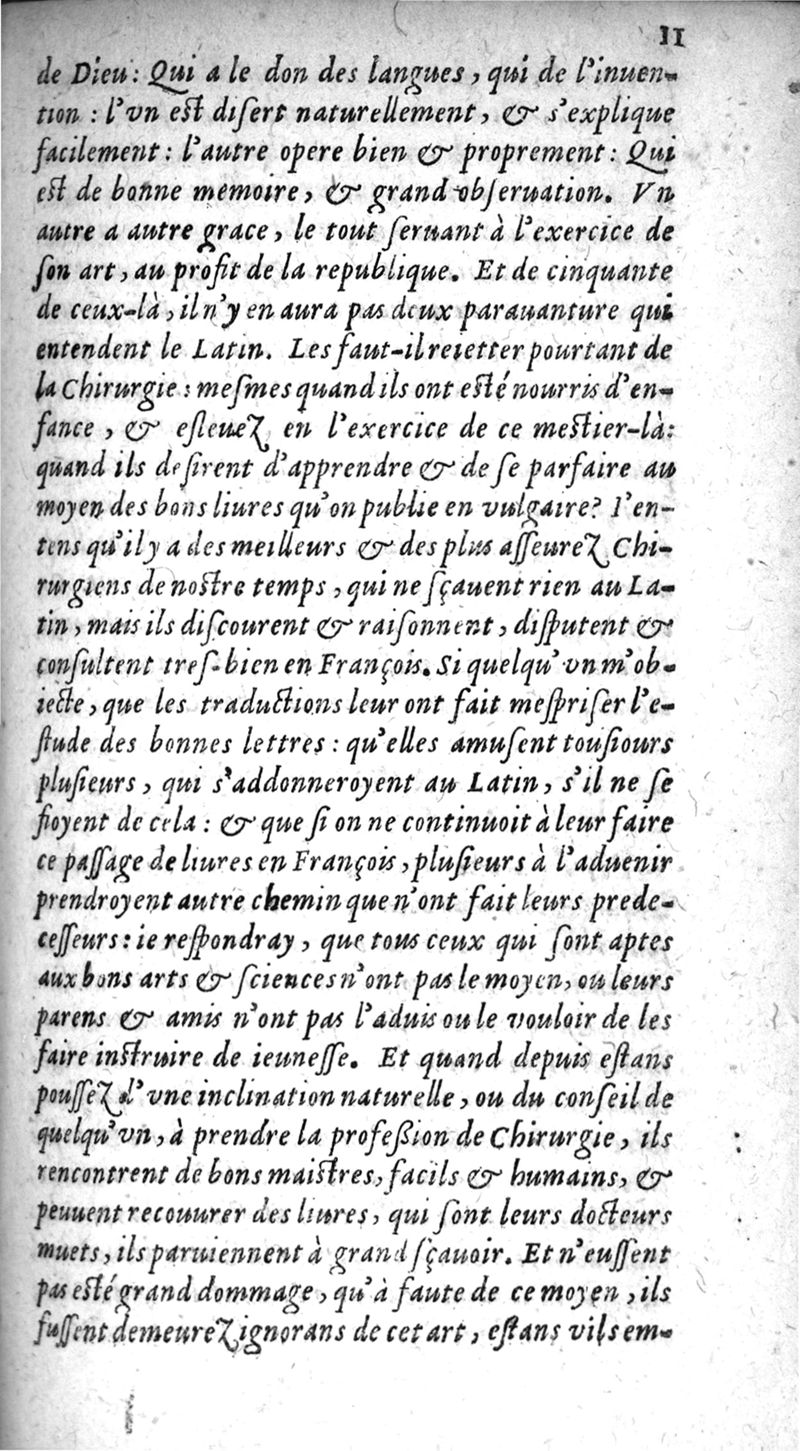 11
de Dieu: Qui a le don des langues, qui de l'inuen-
tion : l'vn est diſert naturellement, & s'explique
facilement: l'autre opere bien & proprement: Qui
est de bonne memoire, & grand obſeruation. Vn
autre a autre grace, le tout ſeruant à l'exercice de
ſon art, au profit de la republique. Et de cinquante
de ceux-là, il n'y en aura pas deux parauanture qui
entendent le Latin. Les faut-il reietter pourtant de
la Chirurgie: meſmes quand ils ont esté nourris d'en-
fance, & eſleuez en l'exercice de ce mestier-là:
quand ils deſirent d'apprendre & de ſe parfaire au
moyen des bons liures qu'on publie en vulgaire? I'en-
tens qu'il y a des meilleurs & des plus aſſeurez Chi-
rurgiens de nostre temps, qui ne ſçauent rien au La-
tin, mais ils diſcourent & raiſonnent, diſputent &
conſultent treſ-bien en François. Si quelqu'vn m'ob-
iecte, que les traductions leur ont fait meſpriſer l'e-
ſtude des bonnes lettres: qu'elles amuſent touſiours
pluſieurs, qui s'addonneroyent au Latin, s'il ne ſe
fioyent de cela: & que ſi on ne continuoit à leur faire
ce paſſage de liures en François, pluſieurs à l'aduenir
prendroyent autre chemin que n'ont fait leurs prede-
ceſſeurs: ie reſpondray, que tous ceux qui ſont aptes
aux bons arts & ſciences n'ont pas le moyen, ou leurs
parens & amis n'ont pas l'aduis ou le vouloir de les
faire instruire de ieuneſſe. Et quand depuis eſtans
pouſſez d'vne inclination naturelle, ou du conſeil de
quelqu'vn, à prendre la profeßion de Chirurgie, ils
rencontrent de bons maistres, facils & humains, &
peuuent recouurer des liures, qui ſont leurs docteurs
muets, ils paruiennent à grand ſçauoir. Et n'euſſent
pas esté grand dommage, qu'à faute de ce moyen, ils
fuſſent demeurez ignorans de cet art, eſtans vils em-